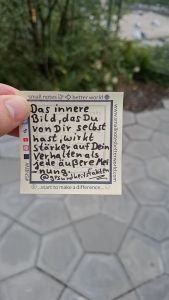 small notes better world
Das innere
Bild, das Du
von Dir selbst
hast, wirkt
stärker auf Dein
Verhalten als
jede äußere Mei-
nung.
@gesundheitsfakten
...start to make a difference...
www.smallnotesbetterworld.com